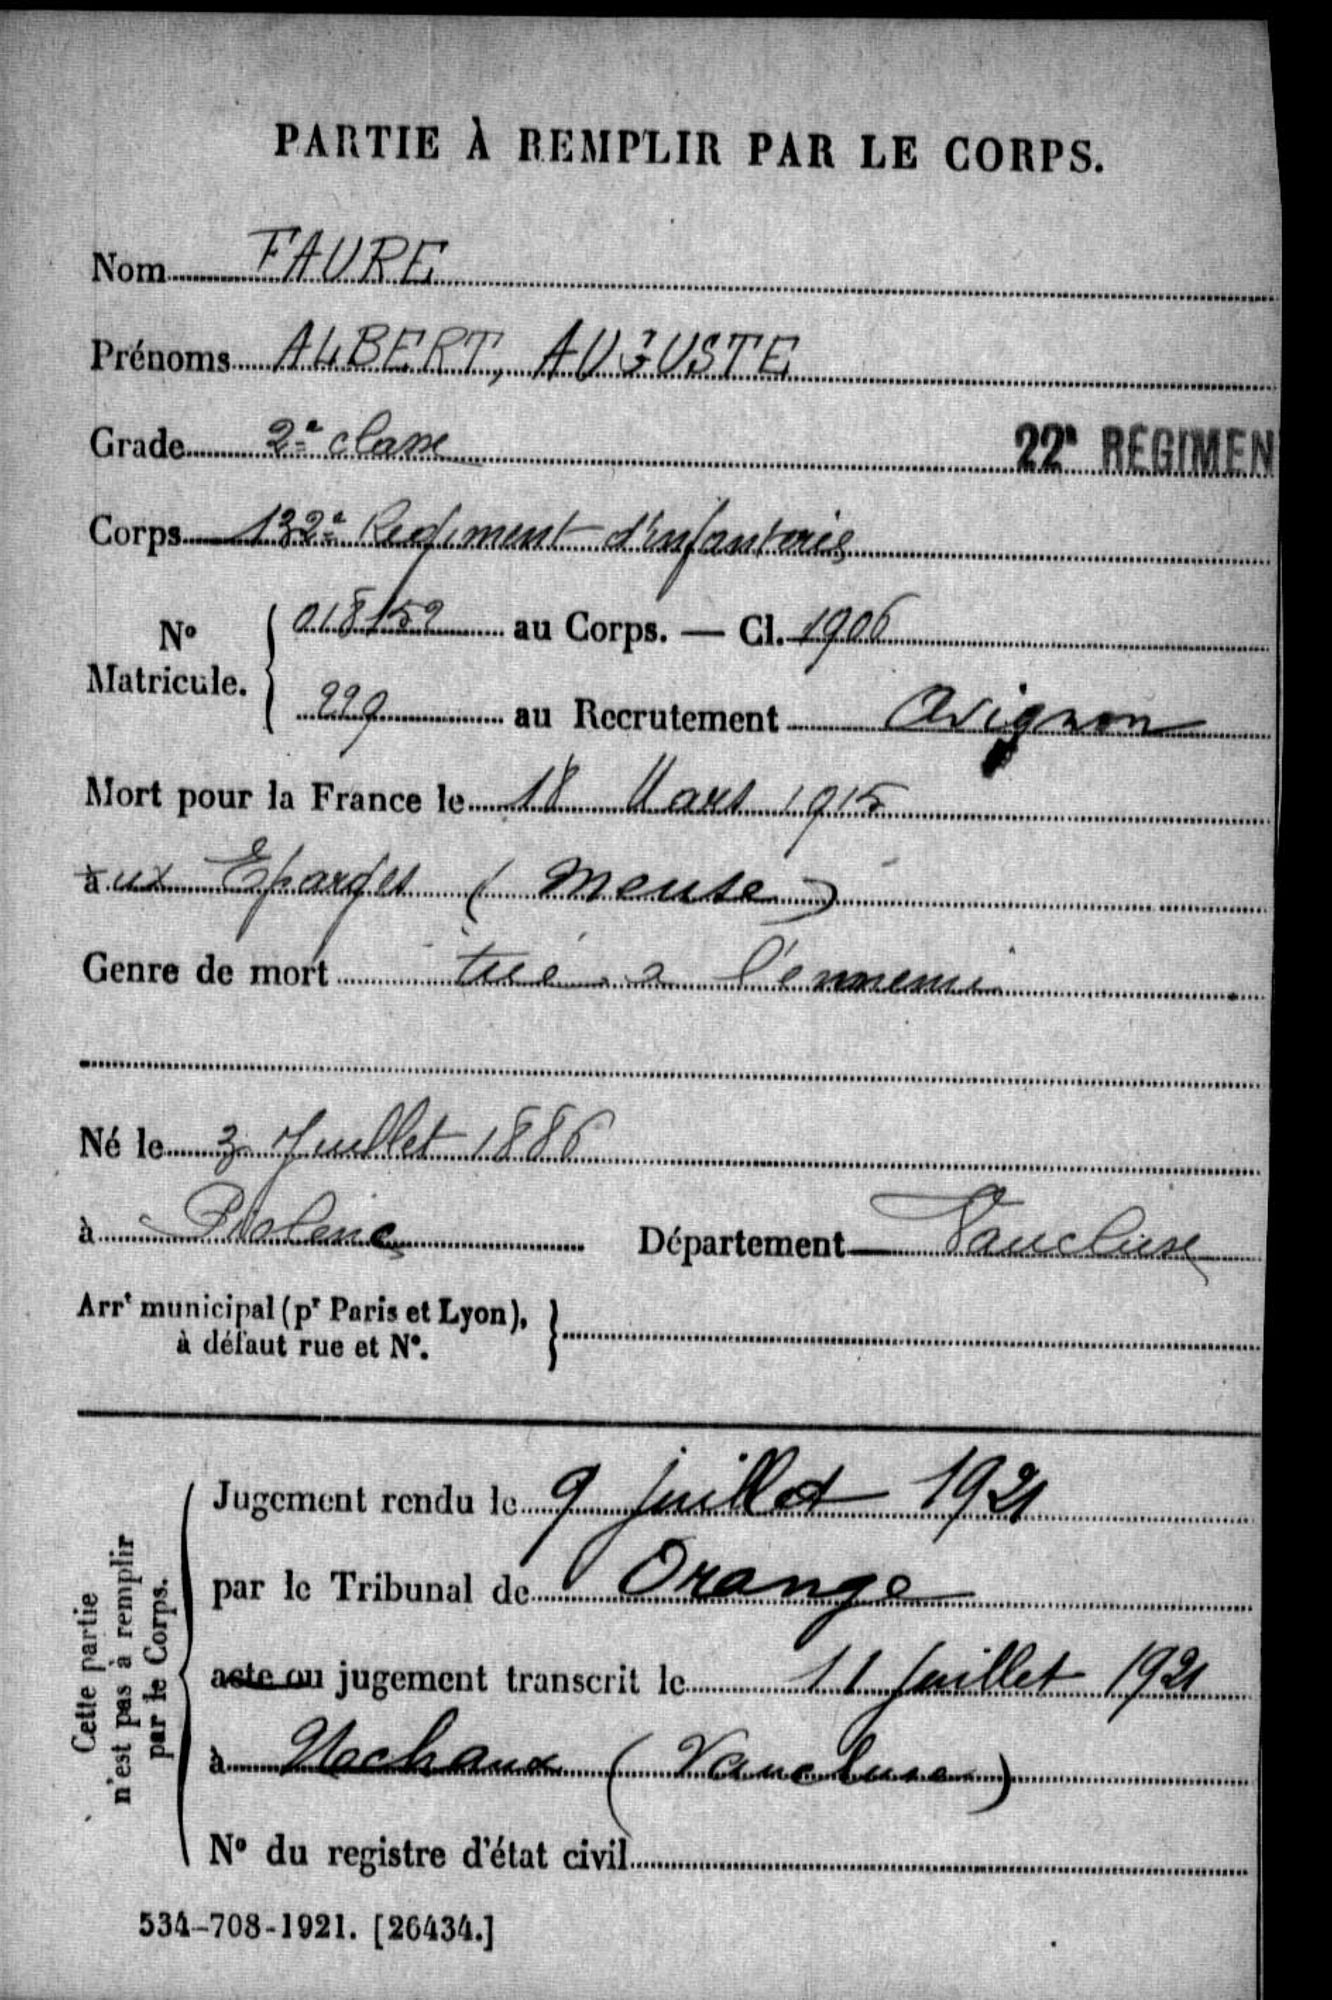 PARTIE À REMPLIR PAR LE CORPS.
Nom FAURE
Prénoms ALBERT, AUGUSTE
Grade 2e classe 22e REGIMEN
Corps 132e Regiment d'infanterie
No Matricule. 018152 au Corps. — Cl. 1906
229 au Recrutement Avignon
Mort pour la France le 18 Mars 1915
aux Eparges (Meuse)
Genre de mort tué à l'ennemi
Né le 3 Juillet 1886
à Piolenc Département Vaucluse
Arrt municipal (pr Paris et Lyon),
à défaut rue et No.
Cette partie
n'est pas à remplir
par le Corps.
Jugement rendu le 9 juillet 1921
par le Tribunal de Orange
acte ou jugement transcrit le 11 juillet 1921
à Uchaux (Vaucluse)
No du registre d'état civil
534-708-1921. [26434.]